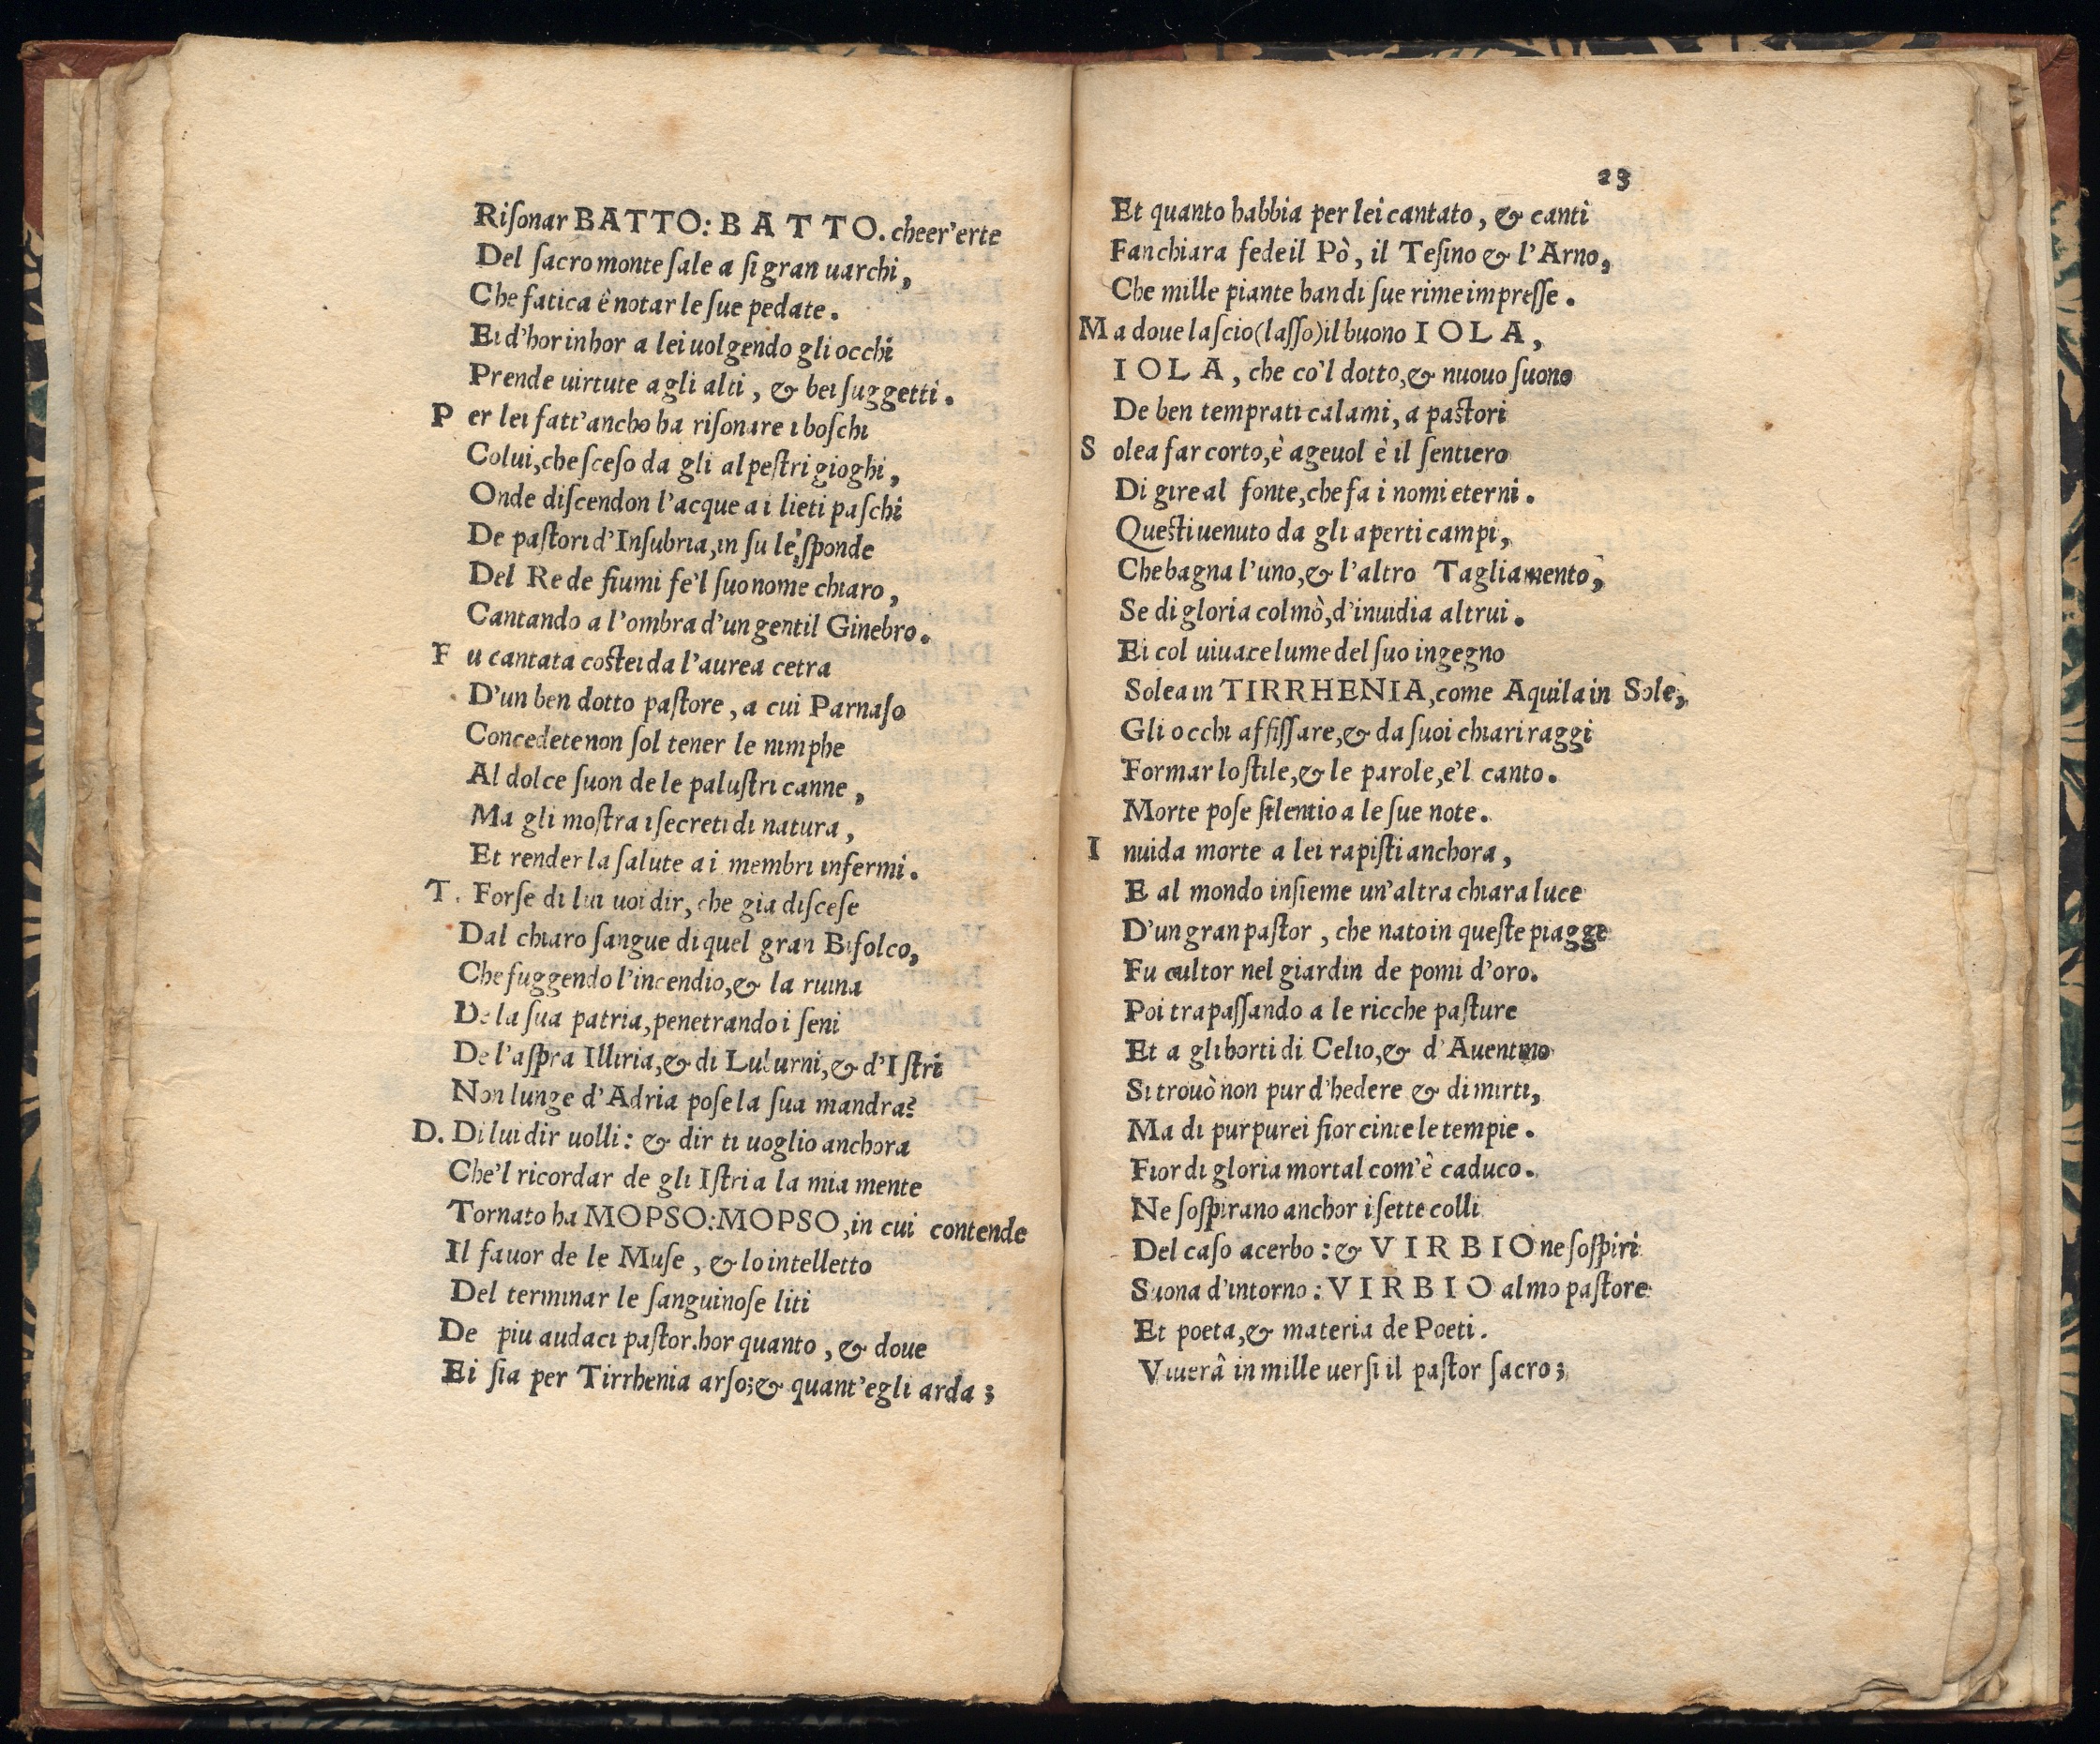 Riſonar BATTO: BATTO. che er'erte
Del ſacro monte ſale a ſi gran uarchi,
Che fatica è notar le ſue pedate.
Ei d'hor inhor a lei uolgendo gli occhi
Prende uirtute a gli alti, & bei ſuggetti.
P er lei fatt'ancho ha riſonare i boſchi
Colui, che ſceſo da gli alpeſtri gioghi,
Onde diſcendon l'acque a i lieti paſchi
De paſtori d'Inſubria, in ſu le ſponde
Del Re de fiumi fe'l ſuo nome chiaro,
Cantando a l'ombra d'un gentil Ginebro.
F u cantata coſtei da l'aurea cetra
D'un ben dotto paſtore, a cui Parnaſo
Concedete non ſol tener le nimphe
Al dolce ſuon de le paluſtri canne,
Ma gli moſtra i ſecreti di natura,
Et render la ſalute a i membri infermi.
T. Forſe di lui uoi dir, che gia diſceſe
Dal chiaro ſangue di quel gran Bifolco,
Che fuggendo l'incendio, & la ruina
De la ſua patria, penetrando i ſeni
De l'aſpra Illiria, & di Luburni, & d'Iſtri
Non lunge d'Adria poſe la ſua mandra?
D. Di lui dir uolli: & dir ti uoglio anchora
Che'l ricordar de gli Iſtri a la mia mente
Tornato ha MOPSO: MOPSO, in cui contende
Il fauor de le Muſe, & lo intelletto
Del terminar le ſanguinoſe liti
De piu audaci paſtor. hor quanto, & doue
Ei ſia per Tirrhenia arſo; & quant'egli arda;
23
Et quanto habbia per lei cantato, & canti
Fan chiara fede il Pò, il Teſino & l'Arno,
Che mille piante han di ſue rime impreſſe.
M a doue laſcio (laſſo) il buono IOLA,
IOLA, che co'l dotto, & nuouo ſuono
De ben temprati calami, a paſtori
S olea far corto, è ageuol è il ſentiero
Di gire al fonte, che fa i nomi eterni.
Queſti uenuto da gli aperti campi,
Che bagna l'uno, & l'altro Tagliamento,
Se di gloria colmò, d'inuidia altrui.
Ei col uiuace lume del ſuo ingegno
Solea in TIRRHENIA, come Aquila in Sole,
Gli occhi affiſſare, & da ſuoi chiari raggi
Formar lo ſtile, & le parole, e'l canto.
Morte poſe ſilentio a le ſue note.
I nuida morte a lei rapiſti anchora,
E al mondo inſieme un'altra chiara luce
D'un gran paſtor, che nato in queſte piagge
Fu cultor nel giardin de pomi d'oro.
Poi trapaſſando a le ricche paſture
Et a gli horti di Celio, & d'Auentino
Si trouò non pur d'hedere & di mirti,
Ma di purpurei fior cinte le tempie.
Fior di gloria mortal com'è caduco.
Ne ſoſpirano anchor i ſette colli
Del caſo acerbo: & VIRBIO ne ſoſpiri
Suona d'intorno: VIRBIO almo paſtore
Et poeta, & materia de Poeti.
Viuerâ in mille uerſi il paſtor ſacro;